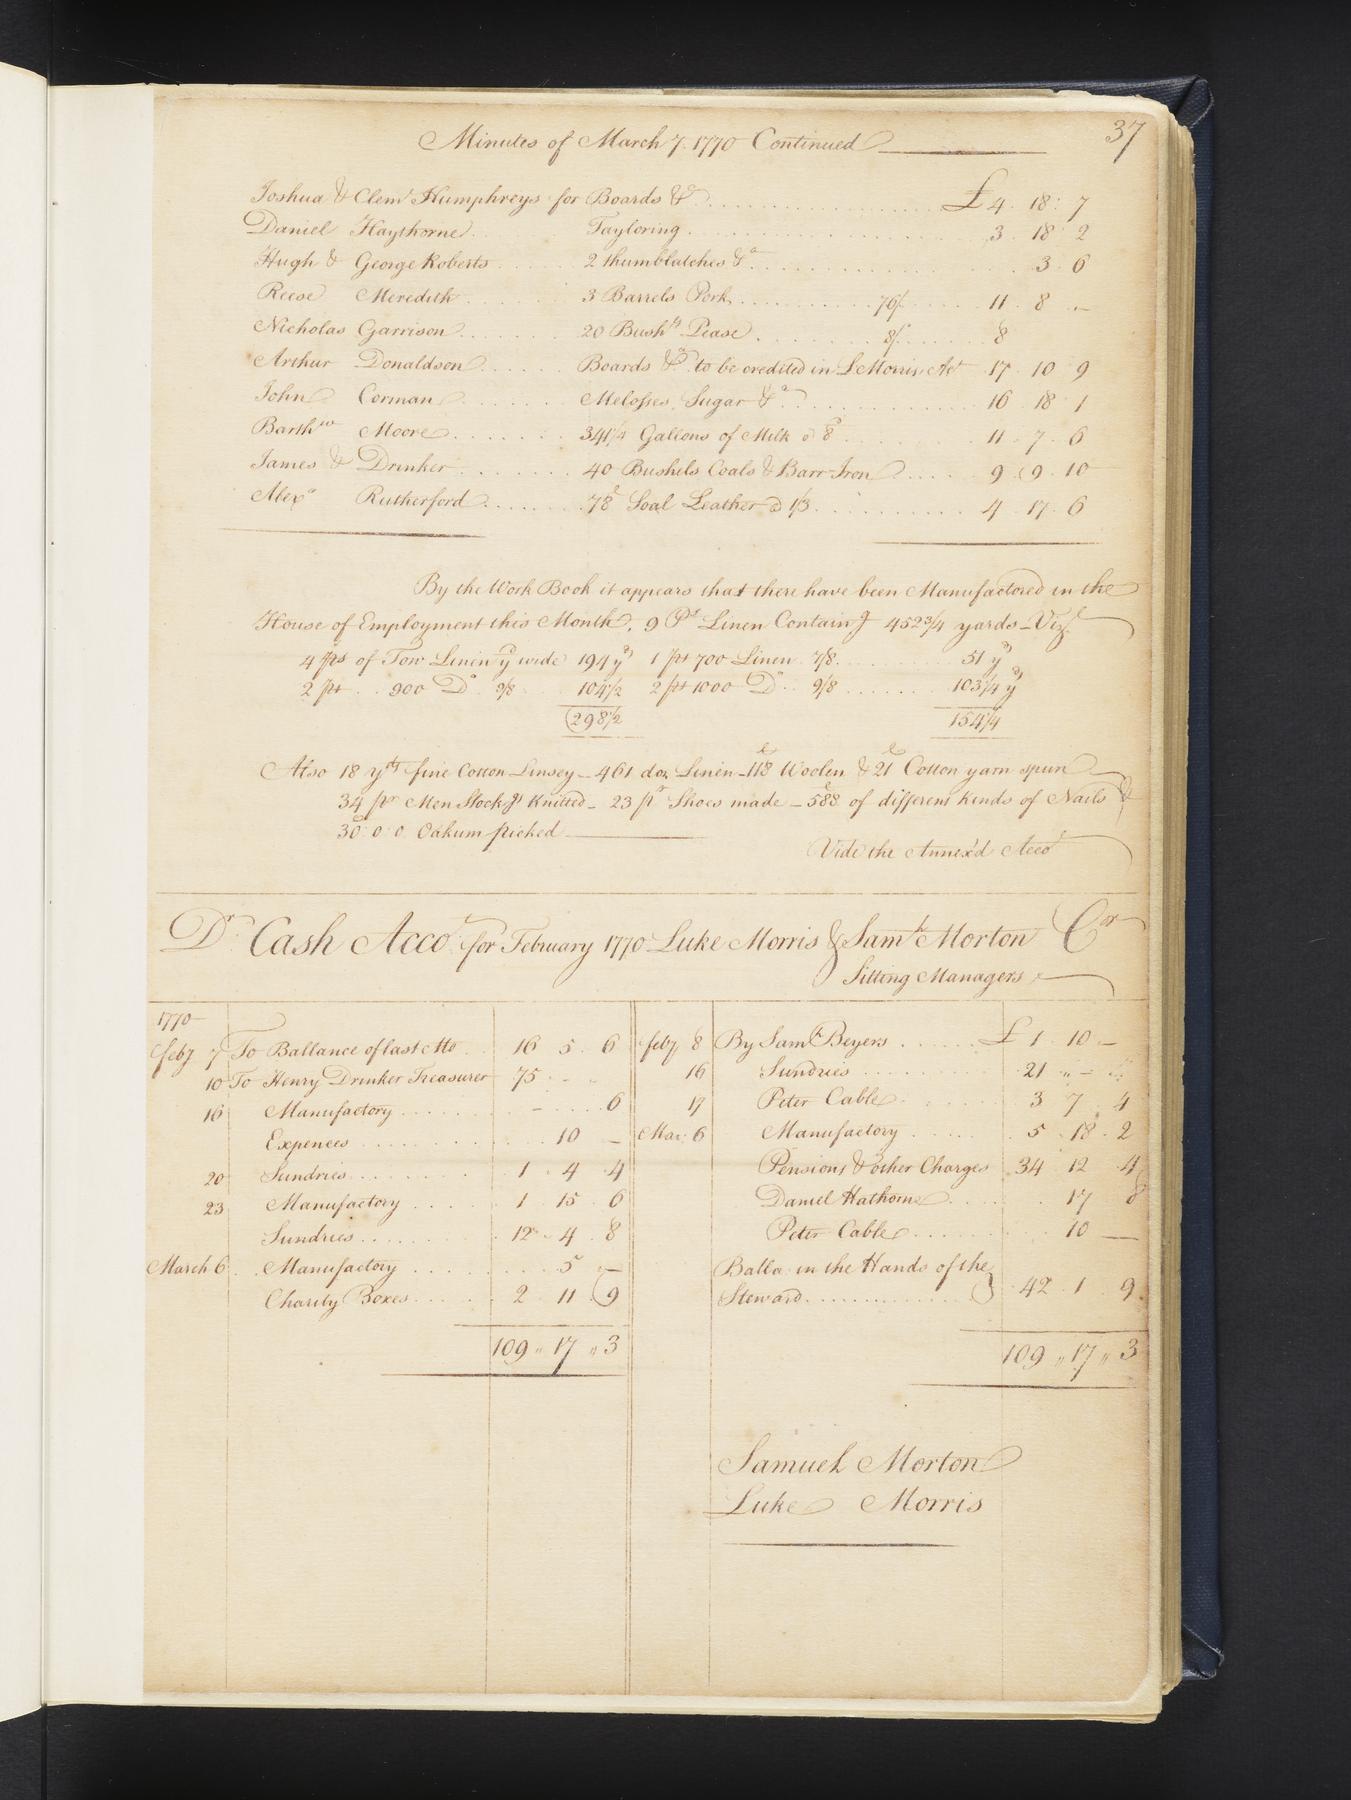 37
Minutes of March 7. 1770 Continued
Joshua & Clemt Humphreys for Boards &c £4. 18: 7
Daniel Haythorne Tayloring 3. 18. 2
Hugh & George Roberts 2 thumblatches &a 3. 6
Reese Meredith 3 Barrels Pork 76/ 11. 8. -
Nicholas Garrison 20 Bushls Pease 8/ 8
Arthur Donaldson Boards &a to be credited in L Morris Act 17. 10. 9
John Corman Melosses, Sugar &a 16. 18. 1
Barthw Moore 341 1/4 Gallons of Milk @ 8d 11. 7. 6
James & Drinker 40 Bushels Coals & Barr Iron 9. 9. 10
Alexr Rutherford 78l Soal Leather @ 1/3 4. 17. 6
By the Work Book it appears that there have been Manufactored in the
House of Employment this Month, 9 Ps Linen Containg 452 3/4 yards - Vizt
4 ps of Tow Linen yd wide 194 yds 1 ps 700 Linen 7/8 51 yds
2 ps 900 Do 9/8 104 1/2 2 ps 1000 Do 9/8 103 3/4 yds
298 1/2 154 1/4
Also 18 yds fine Cotton Linsey - 461 doz Linen - 118l Woolen & 21l Cotton yarn spun
34 pr Men Stockgs Knitted - 23 pr Shoes made - 588l of different kinds of Nails &
30: 0: 0 Oakum picked
Vide the Annex'd Accot
Dr Cash Accot for February 1770 Luke Morris & Saml Morton Cor
Sitting Managers
1770
feby 7 To Ballance of last Mo 16 5. 6
10 To Henry Drinker Treasurer 75 - -
16 Manufactory - 6
Expences 10 -
20 Sundries 1. 4. 4
23 Manufactory 1. 15. 6
Sundries 12. 4. 8
March 6 Manufactory 5 -
Charity Boxes 2. 11. 9
109 " 17 " 3
feby 8 By Saml Beyers £1. 10 -
16 Sundries 21 " - "
17 Peter Cable 3 7. 4
Mar. 6 Manufactory 5. 18. 2
Pensions & other Charges 34. 12. 4
Daniel Hathorne 17 8
Peter Cable 10 -
Balla in the Hands of the
Steward 42. 1. 9
109 " 17 " 3
Samuel Morton
Luke Morris